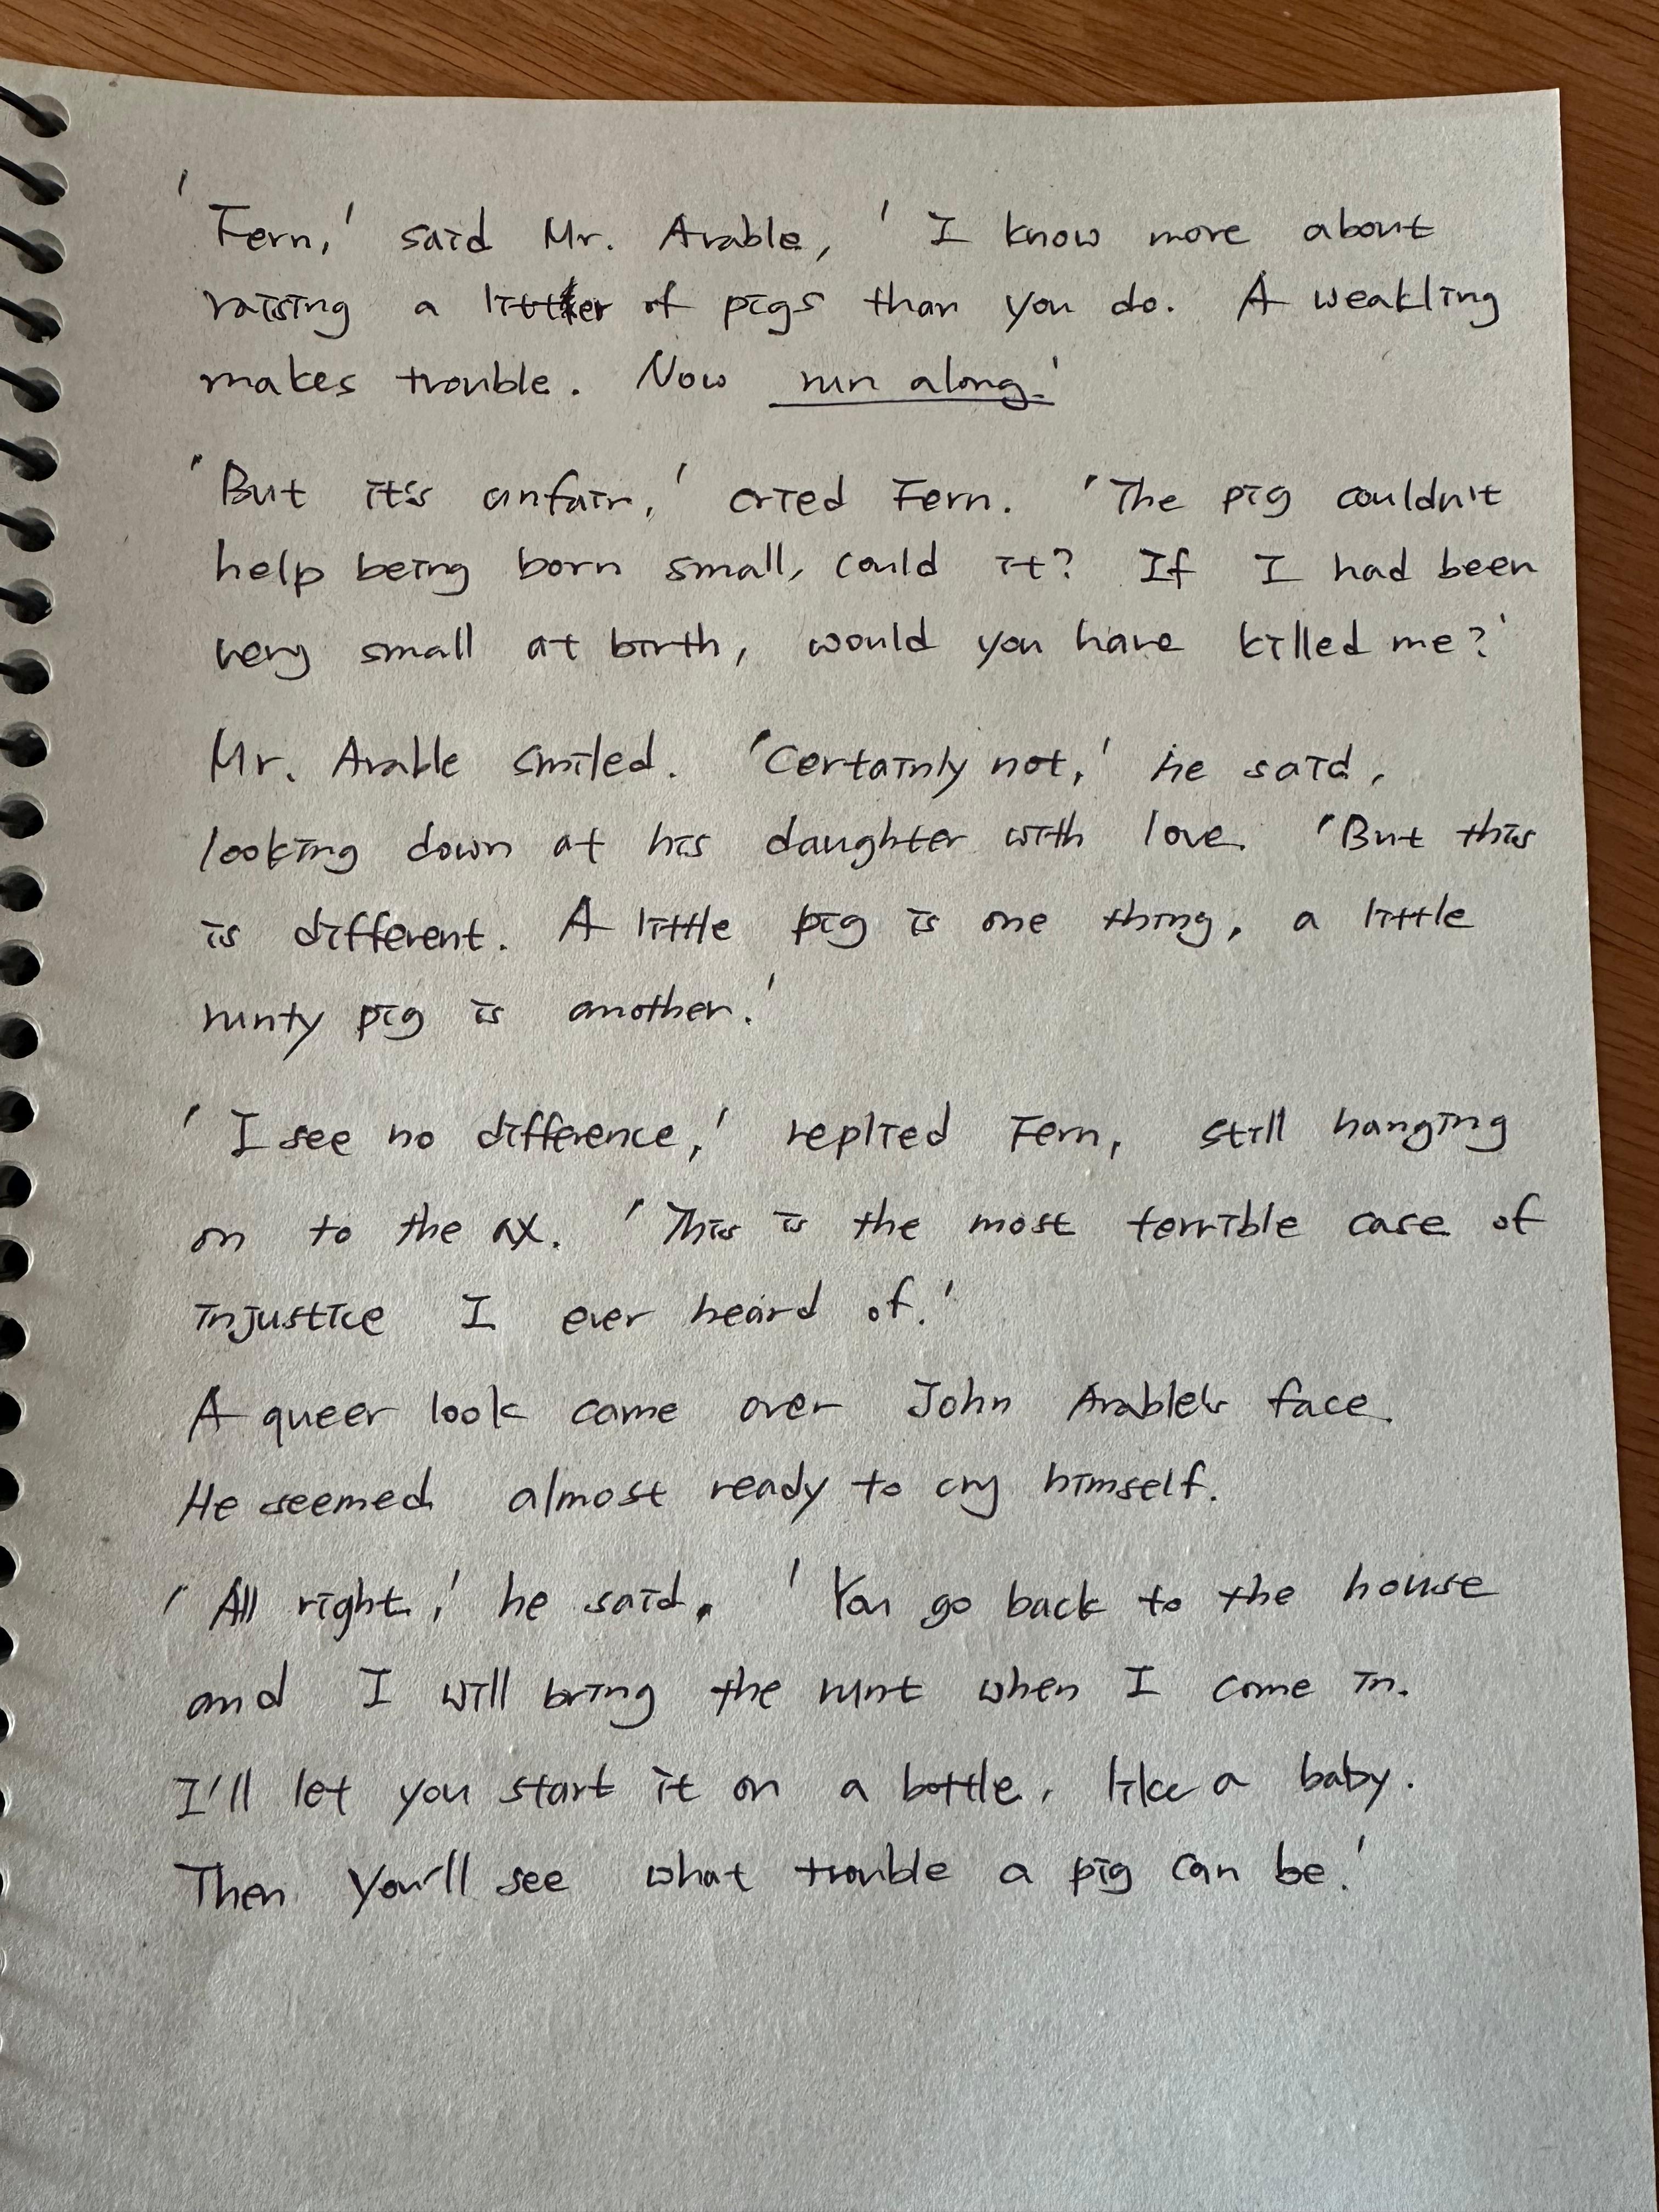 'Fern,' said Mr. Arable, 'I know more about
raising a litter of pigs than you do. A weakling
makes trouble. Now run along.'
'But it's unfair,' cried Fern. 'The pig couldn't
help being born small, could it? If I had been
very small at birth, would you have killed me?'
Mr. Arable smiled. 'Certainly not,' he said,
looking down at his daughter with love. 'But this
is different. A little pig is one thing, a little
runty pig is another.'
'I see no difference,' replied Fern, still hanging
on to the ax. 'This is the most terrible case of
injustice I ever heard of.'
A queer look came over John Arable's face.
He seemed almost ready to cry himself.
'All right,' he said. 'You go back to the house
and I will bring the runt when I come in.
I'll let you start it on a bottle, like a baby.
Then you'll see what trouble a pig can be.'